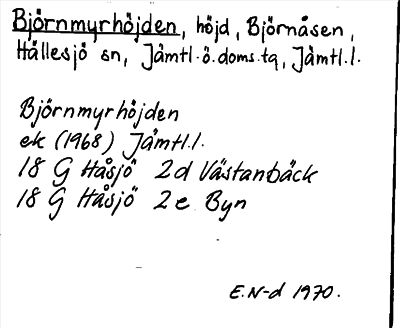 Björnmyrhöjden, höjd, Björnåsen,
Hällesjö sn, Jämtl.ö.doms.tg, Jämtl.l.
Björnmyrhöjden
ek (1968) Jämtl.l.
18 G Håsjö 2d Västanbäck
18 G Håsjö 2e Byn
E.N-d 1970.